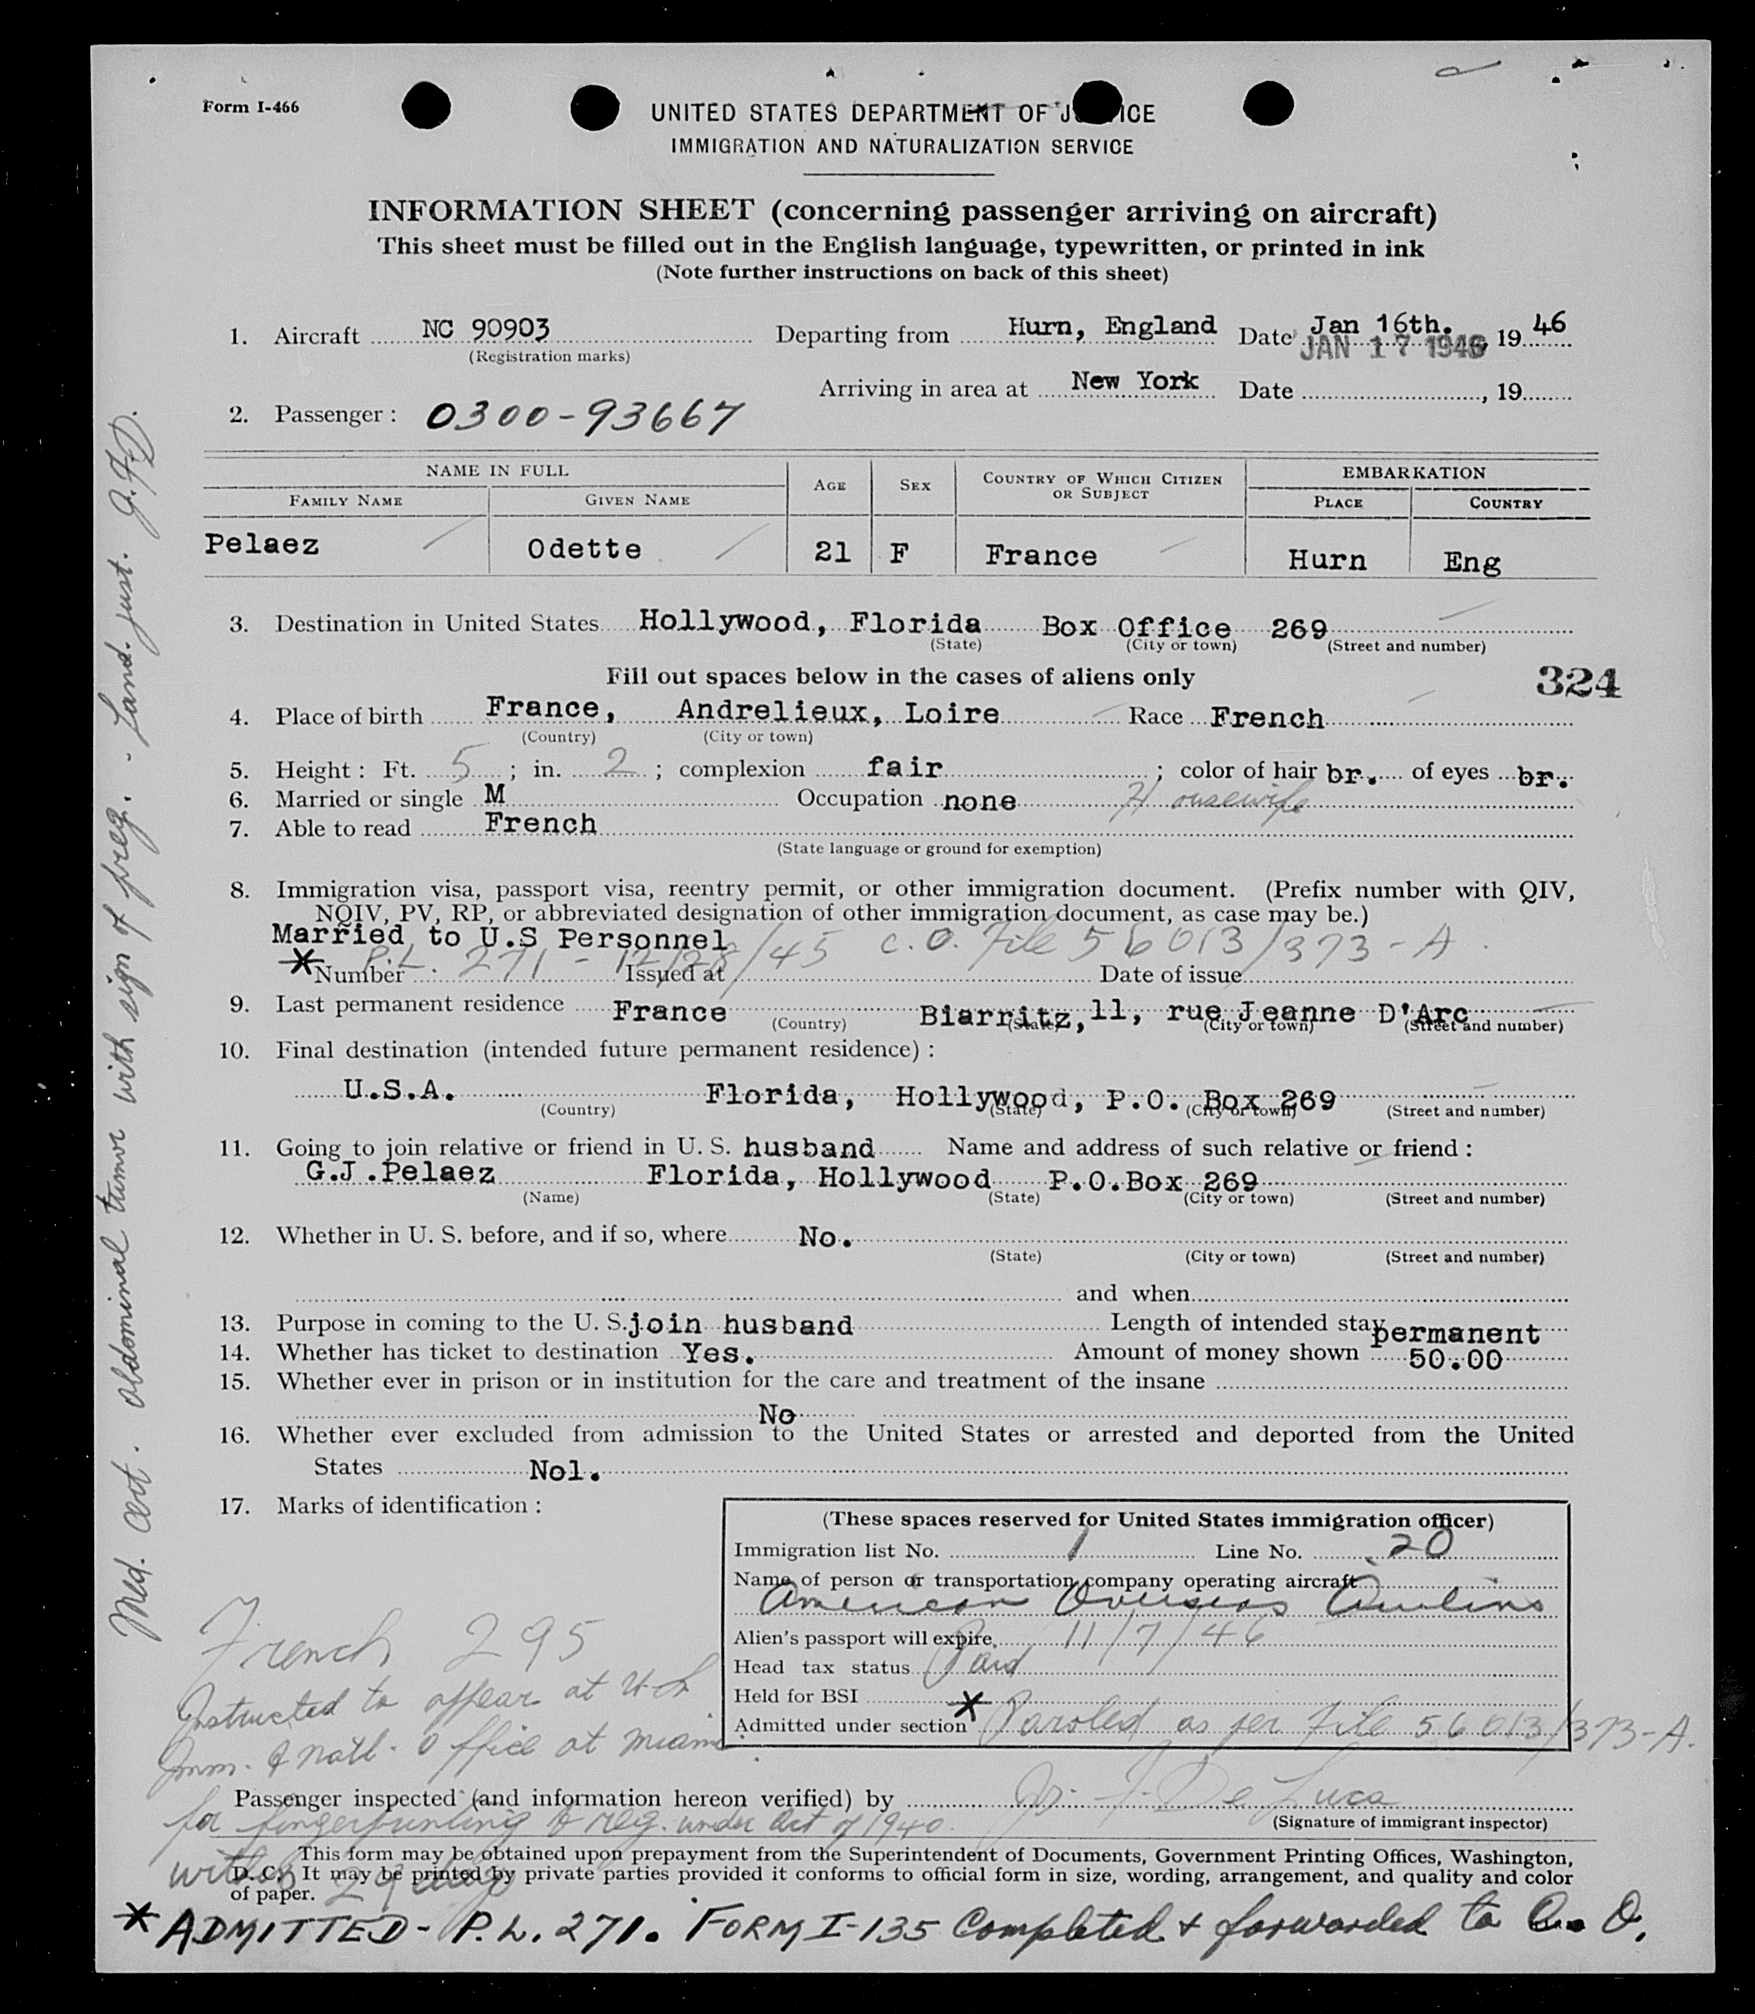 Form I-466
UNITED STATES DEPARTMENT OF J ICE
IMMIGRATION AND NATURALIZATION SERVICE
INFORMATION SHEET (concerning passenger arriving on aircraft)
This sheet must be filled out in the English language, typewritten, or printed in ink
(Note further instructions on back of this sheet)
1. Aircraft NC 90903 Departing from Hurn, England Date Jan 16th. , 19 46
(Registration marks) JAN 17 1946
Arriving in area at New York Date , 19
2. Passenger : 0300-93667
NAME IN FULL AGE SEX COUNTRY OF WHICH CITIZEN OR SUBJECT EMBARKATION
FAMILY NAME GIVEN NAME PLACE COUNTRY
Pelaez Odette 21 F France Hurn Eng
3. Destination in United States Hollywood, Florida Box Office 269
(State) (City or town) (Street and number)
Fill out spaces below in the cases of aliens only 324
4. Place of birth France, Andrelieux, Loire Race French
(Country) (City or town)
5. Height : Ft. 5 ; in. 2 ; complexion fair ; color of hair br. of eyes br.
6. Married or single M Occupation none Housewife
7. Able to read French
(State language or ground for exemption)
8. Immigration visa, passport visa, reentry permit, or other immigration document. (Prefix number with QIV,
NQIV, PV, RP, or abbreviated designation of other immigration document, as case may be.)
Married to U.S Personnel
P.L. 271 - 12/28/45 C.O. File 56013/373-A.
* Number Issued at Date of issue
9. Last permanent residence France Biarritz, 11, rue Jeanne D'Arc
(Country) (State) (City or town) (Street and number)
10. Final destination (intended future permanent residence) :
U.S.A. Florida, Hollywood, P.O. Box 269
(Country) (State) (City or town) (Street and number)
11. Going to join relative or friend in U. S. husband Name and address of such relative or friend :
G.J.Pelaez Florida, Hollywood P.O.Box 269
(Name) (State) (City or town) (Street and number)
12. Whether in U. S. before, and if so, where No.
(State) (City or town) (Street and number)
and when
13. Purpose in coming to the U. S. join husband Length of intended stay permanent
14. Whether has ticket to destination Yes. Amount of money shown 50.00
15. Whether ever in prison or in institution for the care and treatment of the insane
No
16. Whether ever excluded from admission to the United States or arrested and deported from the United
States Nol.
17. Marks of identification :
(These spaces reserved for United States immigration officer)
Immigration list No. 1 Line No. 20
Name of person or transportation company operating aircraft
American Overseas Airlines
Alien's passport will expire 11/7/46
Head tax status Paid
Held for BSI
Admitted under section * Paroled as per File 56013/373-A.
French 295
Instructed to appear at U.S.
Imm. & Natl. Office at Miami
for fingerprinting & reg. under Act of 1940.
within 29 days
Passenger inspected (and information hereon verified) by J. F. De Luca
(Signature of immigrant inspector)
This form may be obtained upon prepayment from the Superintendent of Documents, Government Printing Offices, Washington,
D. C. It may be printed by private parties provided it conforms to official form in size, wording, arrangement, and quality and color
of paper.
* ADMITTED - P.L. 271. FORM I-135 Completed & forwarded to C. O.
Med. Cert. abdominal tumor with sign of preg. - Land. just. J.F.D.